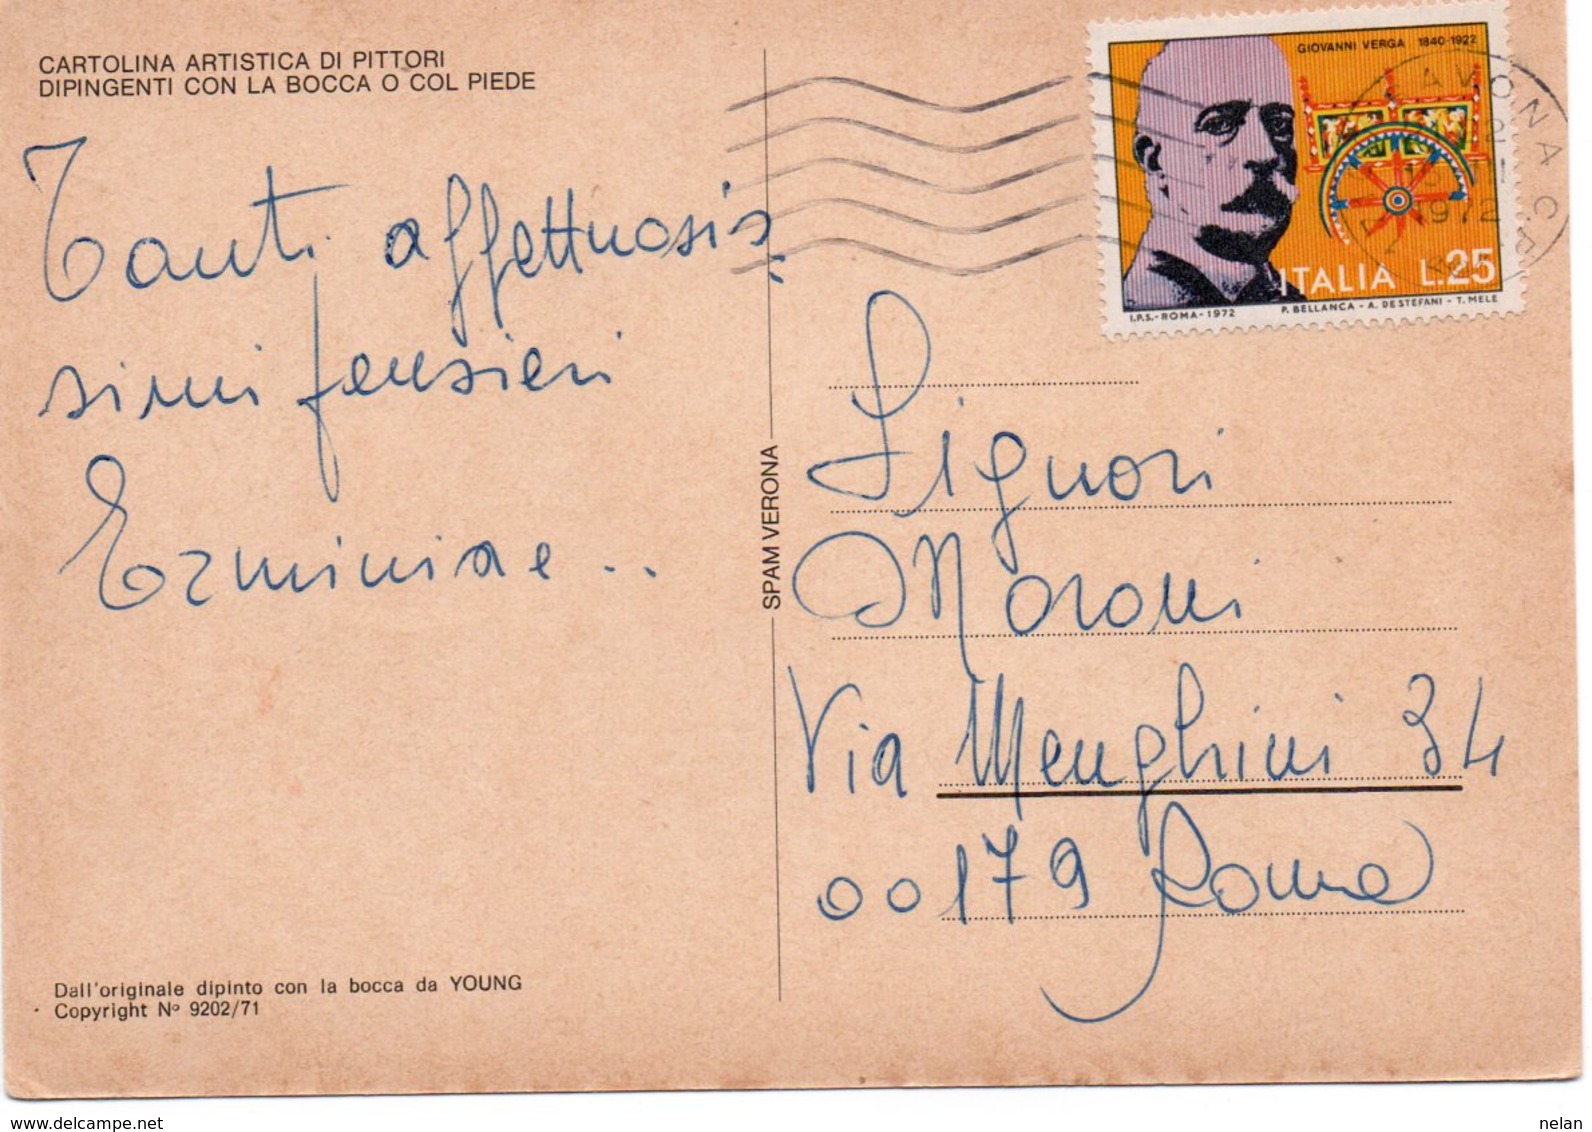 CARTOLINA ARTISTICA DI PITTORI
DIPINGENTI CON LA BOCCA O COL PIEDE
Tanti affettuosis=
simi pensieri
Erminiae..
Dall'originale dipinto con la bocca da YOUNG
Copyright Nº 9202/71
SPAM VERONA
GIOVANNI VERGA 1840-1922
ITALIA L.25
I.P.S.-ROMA-1972 P. BELLANCA - A. DESTEFANI - T. MELE
1972
Signori
Moroni
Via Menghini 34
00179 Roma
www.delcampe.net
nelan